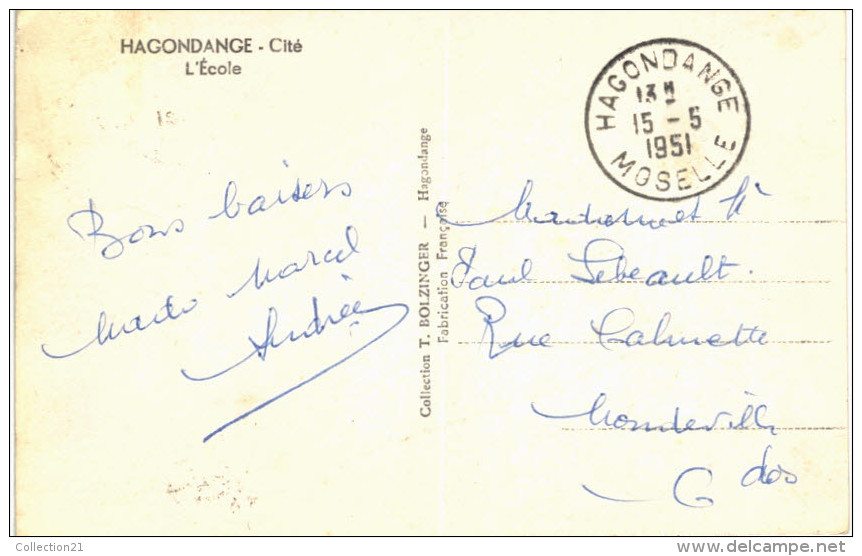 HAGONDANGE - Cité
L'École
HAGONDANGE
13H
15 - 5
1951
MOSELLE
Bons baisers
Mado Marcel
Andrée
Collection T. BOLZINGER — Hagondange
Fabrication Française
et
Paul Lebeault.
Rue Calmette
Mondeville
C dos
Collection21
www.delcampe.net